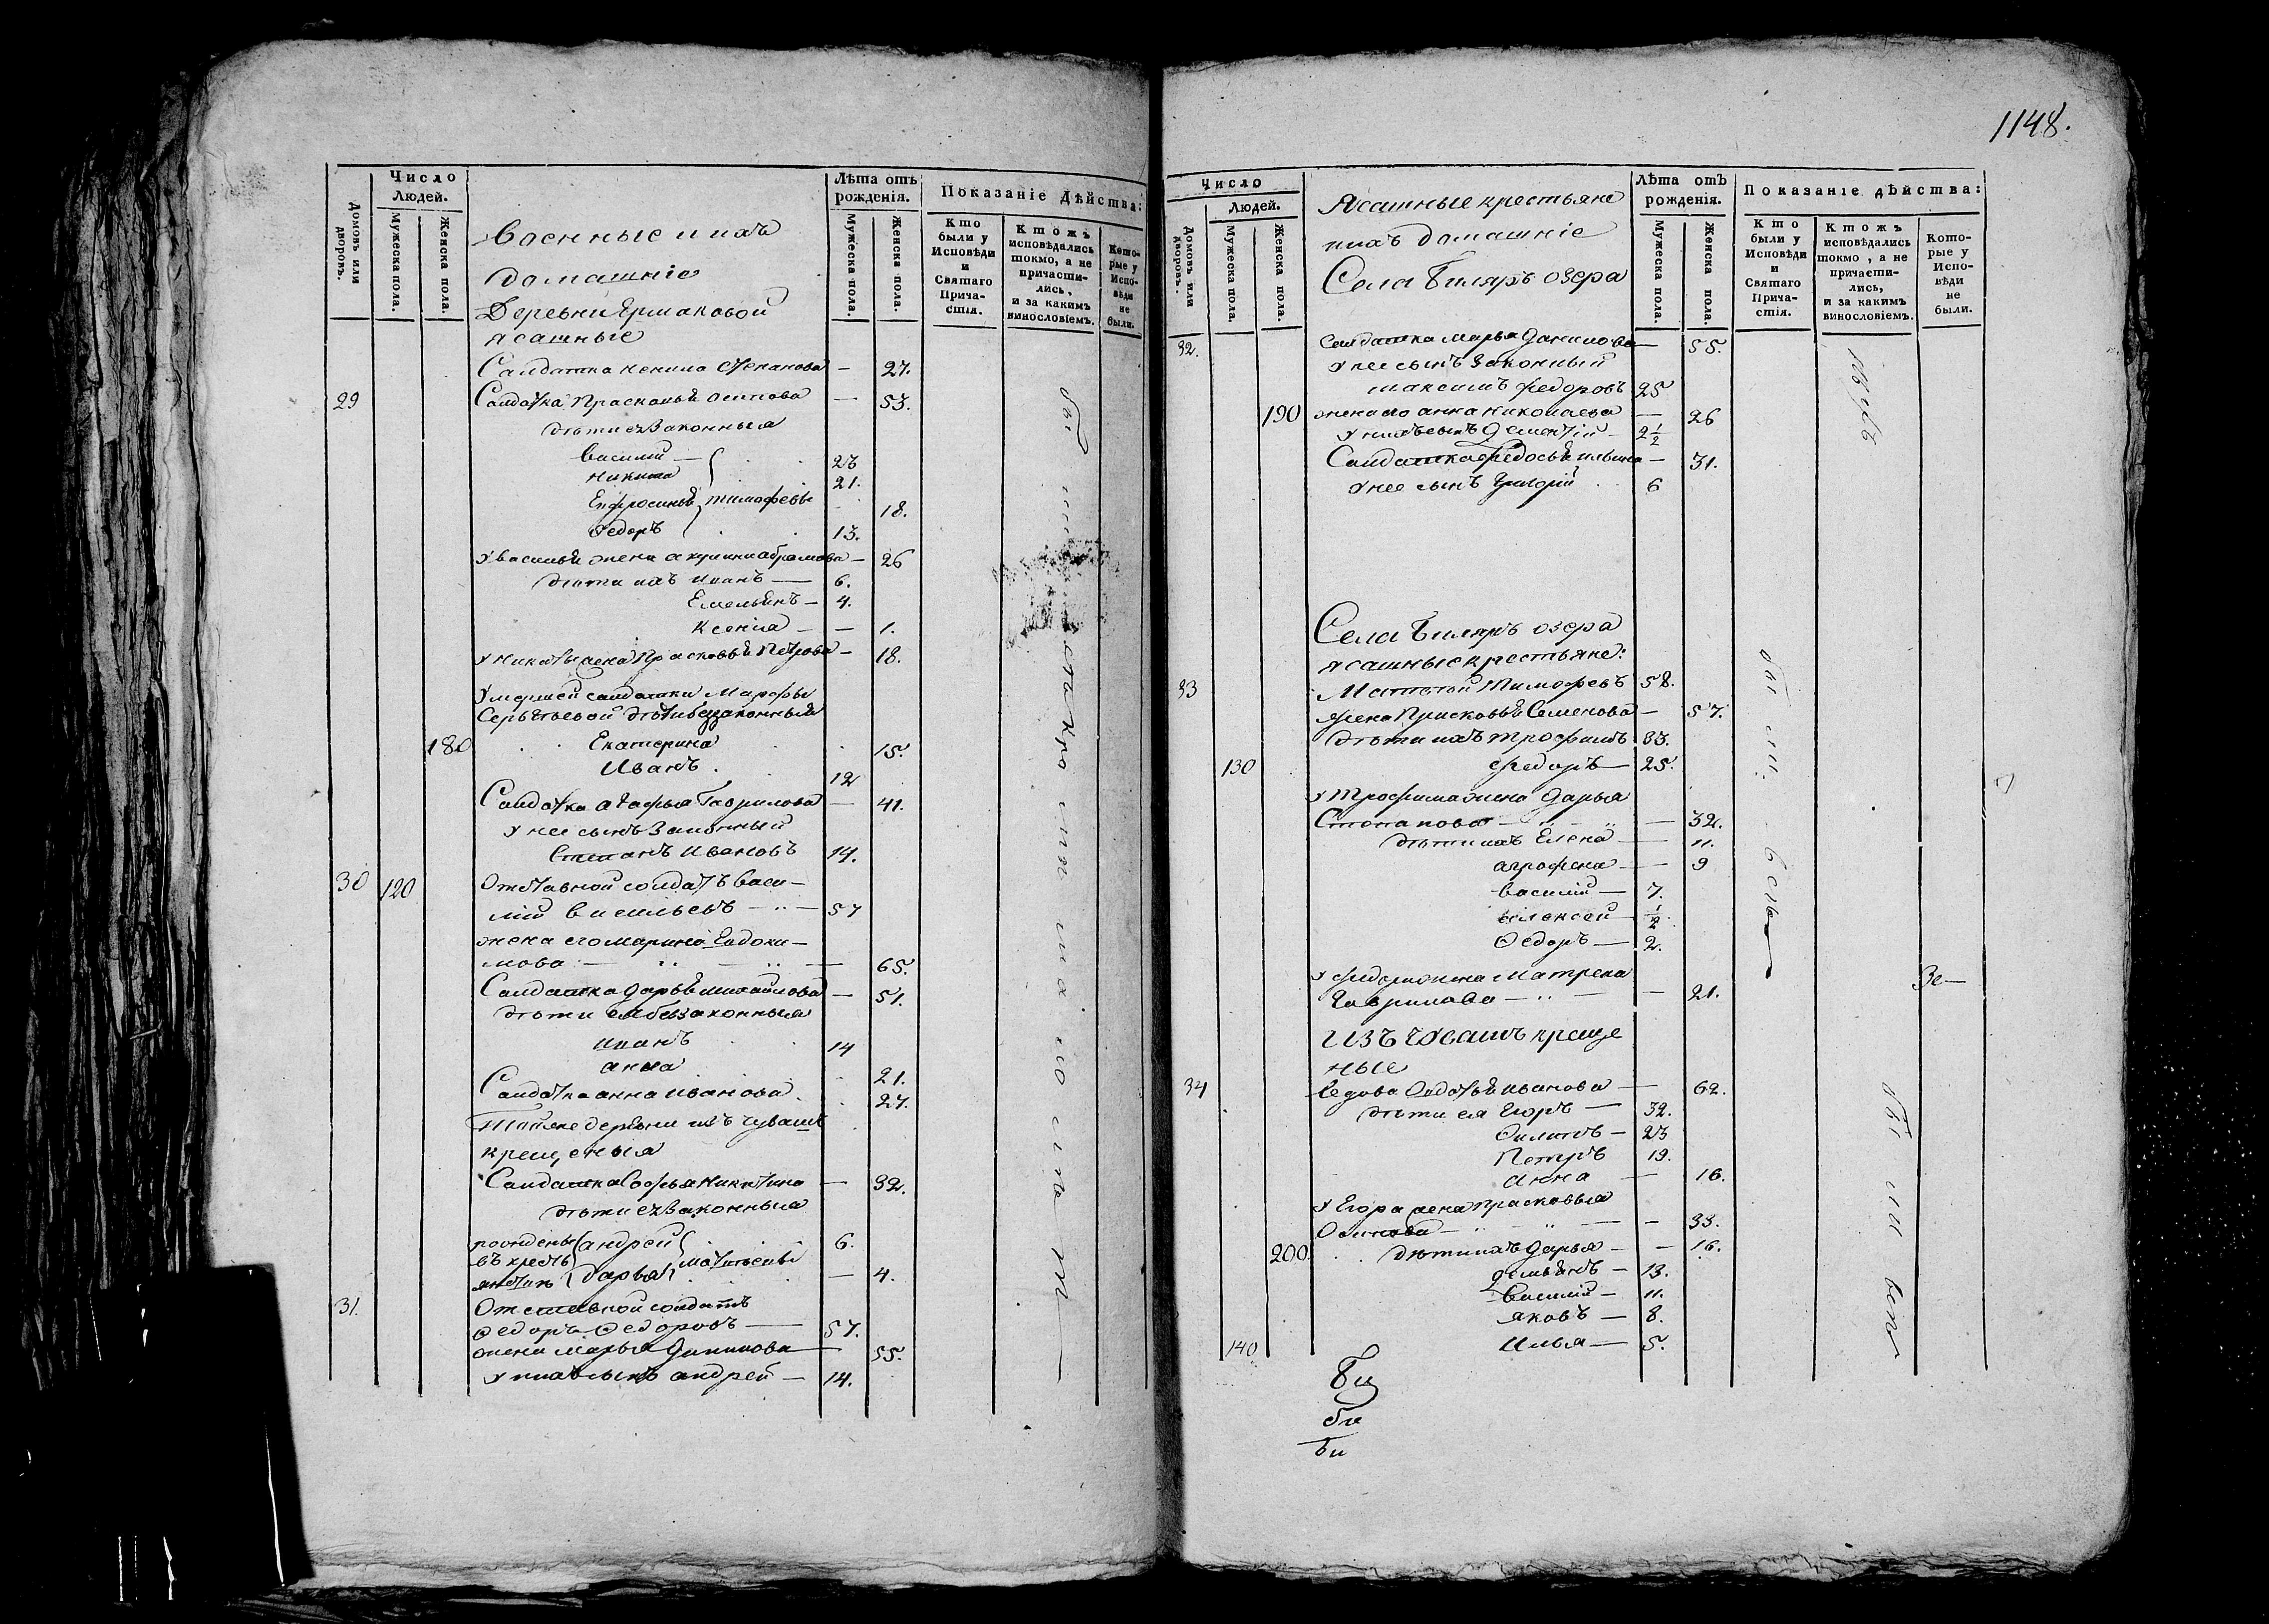 Число
Людей.
Домовъ или дворовъ.
Мужеска пола.
Женска пола.
Лѣта отъ рожденія.
Мужеска пола.
Женска пола.
Показаніе Дѣйства:
Кто были у Исповѣди и Святаго Прича-стія.
Ктожъ исповѣдались токмо, а не причасти-лись, и за какимъ винословіемъ.
Кото-рые у Испо-вѣди не были.
Военные и ихъ
домашніе
Деревни Ермаковой
ясашные
Салдатка Степанова — 27.
29 Салдатка Прасковья Осипова — 53.
дѣти ея законныя
Василій — 23
Никита 21.
Ефросинья Тимофеевы 18.
Федоръ 13.
У Василья жена Акулина Абрамова — 26
дѣти ихъ Иванъ — 6.
Емельянъ — 4.
Ксенія — 1.
У Никиты жена Прасковья Петрова — 18.
Умершей салдатки Марфы
дѣти беззаконныя
180 Екатерина 15.
Иванъ 12
Салдатка Агафья Гаврилова — 41.
У нее сынъ законный
Степанъ Ивановъ 14.
30 120 Отставной солдатъ Васи-
лій Васильевъ — 57
жена его Марина Евдоки-
мова — 65.
Салдатка Дарья Михайлова — 51.
дѣти ея беззаконныя
Иванъ 14
Анна 21.
Салдатка Анна Иванова 27.
Той же деревни изъ чувашъ
крещеныя
Салдатка Софья Никитина — 32.
дѣти ея законныя
рождены Андрей 6.
въ Дарья — 4.
31. Отставной солдатъ
Федоръ Федоровъ — 57.
жена Марья Данилова — 55.
У нихъ сынъ Андрей — 14.
1148.
Число
Людей.
Домовъ или дворовъ.
Мужеска пола.
Женска пола.
Лѣта отъ рожденія.
Мужеска пола.
Женска пола.
Показаніе дѣйства:
Кто были у Исповѣди и Святаго Прича-стія.
Ктожъ исповѣдались токмо, а не причасти-лись, и за какимъ винословіемъ.
Кото-рые у Испо-вѣди не были.
Ясашные крестьяне
и ихъ домашніе
Села Биляръ озера
32. Салдатка Марья Данилова — 55.
У нее сынъ законный
Максимъ Федоровъ 25
190 жена его Анна Николаева — 26
У нихъ сынъ Дементій — 2½
Салдатка Федосья Ильина — 31.
У нее сынъ Григорій 6
Села Биляръ озера
ясашные крестьяне:
33 Матвей Тимофеевъ 58.
Жена Прасковья Семенова — 57.
Дѣти ихъ Трофимъ 33.
130 Федоръ — 25.
У Трофима жена Дарья
Степанова — 32.
дѣти ихъ Елена — 11.
Агрофена — 9
Василій — 7.
Алексей — ½
Федоръ — 2.
У Федора жена Матрена
Гаврилова — 21.
изъ чувашъ креще
ные
34 Вдова Авдотья Иванова — 62.
Дѣти ея Егоръ — 32.
Филипъ — 23
Петръ 19.
Анна — 16.
У Егора жена Прасковья
Осипова — 33.
200. Дѣти ихъ Дарья — 16.
Демьянъ — 13.
Василій — 11.
Яковъ — 8.
140 Илья — 5.